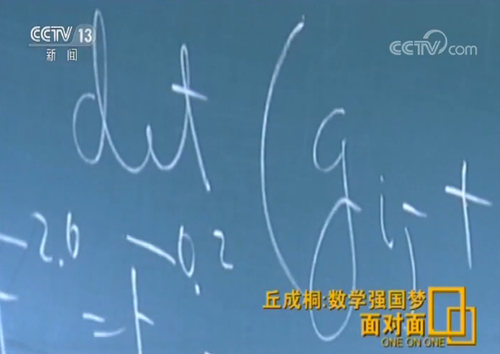 CCTV 13
新闻
CCTV.com
det (g i j +
-2.6 -0.2
= +
丘成桐:数学强国梦
面对面
ONE ON ONE